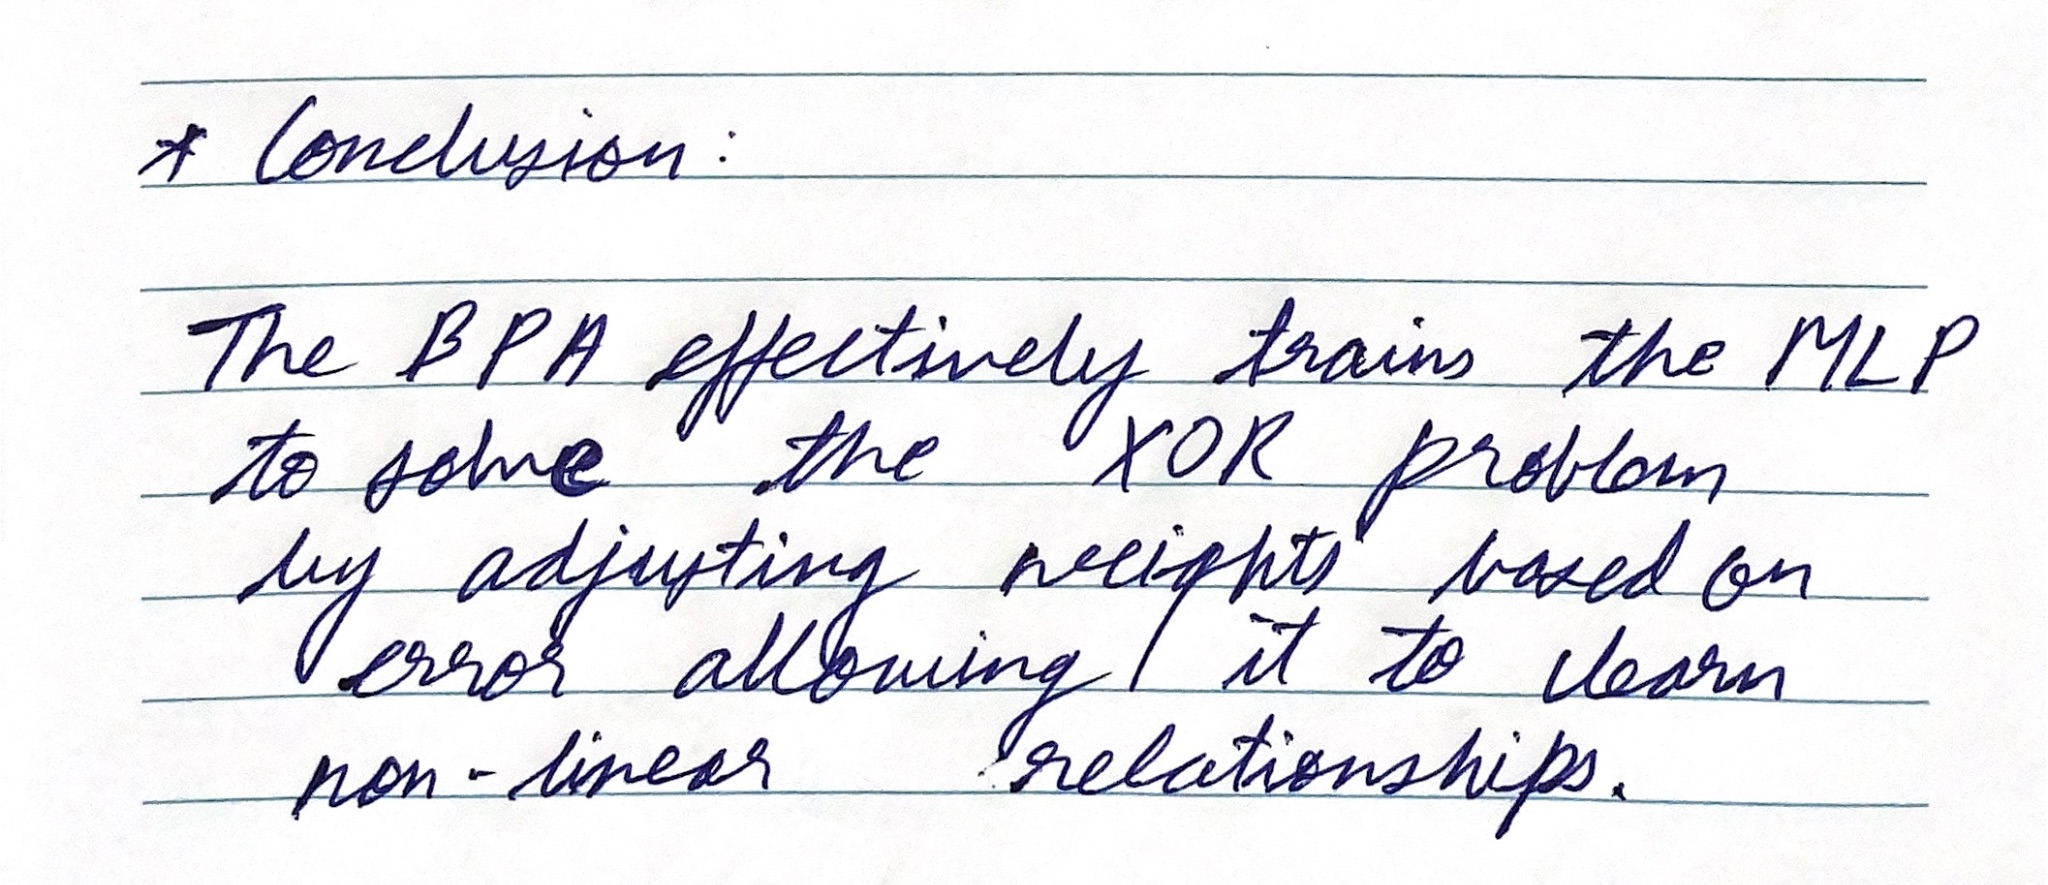 * Conclusion:
The BPA effectively trains the MLP
to solve the XOR problem
by adjusting weights based on
error allowing it to learn
non-linear relationships.